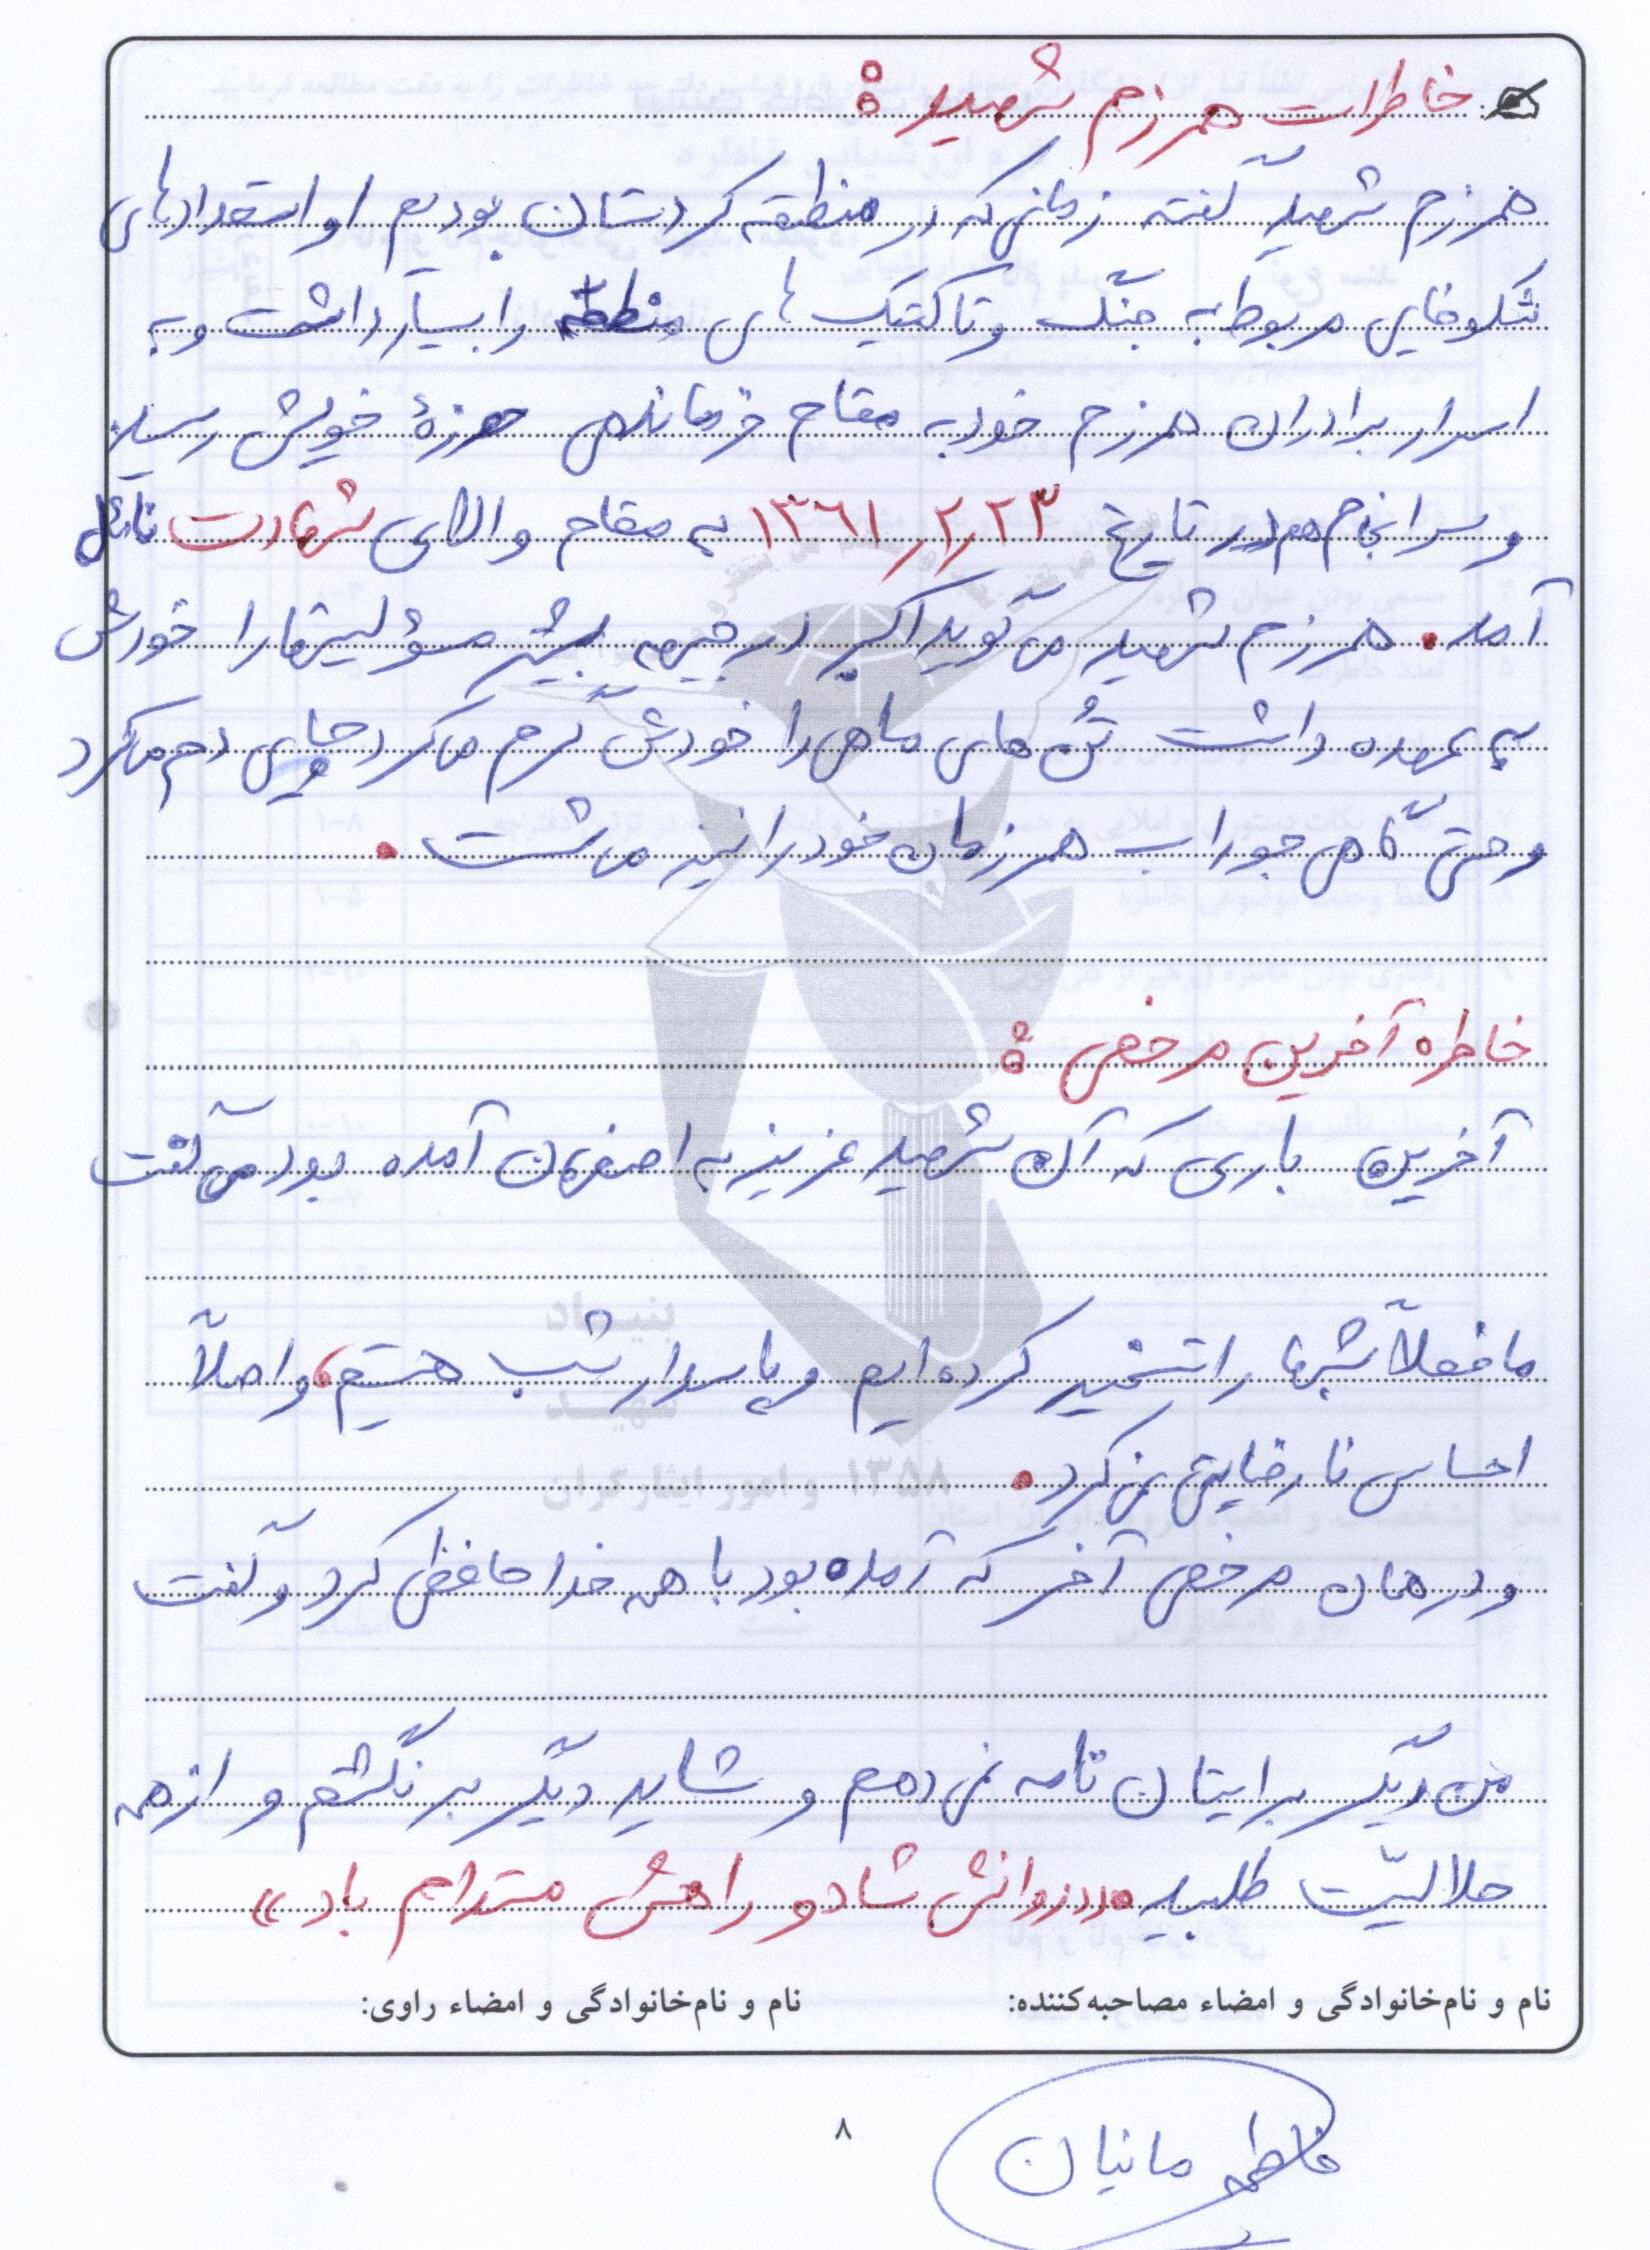 خاطرات همرزم شهید :
همرزم شهید گفته زمانی که در منطقه کردستان بودیم او استعدادهای
شکوفایی مربوط به جنگ و تاکتیک های منطقه را بسیار داشت و به
اسرار برادران همرزم خود به مقام فرماندهی حوزهٔ خویش رسید
و سرانجام هم در تاریخ ۱۳۶۱/۲/۲۳ به مقام والای شهادت نائل
آمد. همرزم شهید می گوید اکبر در جبهه بیشتر مسؤلیتها را خودش
به عهده داشت تُن های ماهی را خودش گرم می کرد چای دم می کرد
و حتی گاهی جوراب همرزمان خود را نیز می شست.
خاطره آخرین مرخصی :
آخرین باری که آن شهید عزیز به اصفهان آمده بود می گفت
ما فعلاً شبها را تسخیر کرده ایم و پاسدار شب هستیم، و اصلاً
احساس نارضایتی نمی کرد.
و در همان مرخصی آخر که آمده بود با همه خداحافظی کرد و گفت
من دیگر برایتان نامه نمی دهم و شاید دیگر برنگشتم و از همه
حلالیّت طلبید «روانش شاد و راهش مستدام باد»
نام و نام‌خانوادگی و امضاء مصاحبه‌کننده:
نام و نام‌خانوادگی و امضاء راوی:
۸
فاطمه مانیان
بنیاد
شهید
و امور ایثارگران ۱۳۵۸